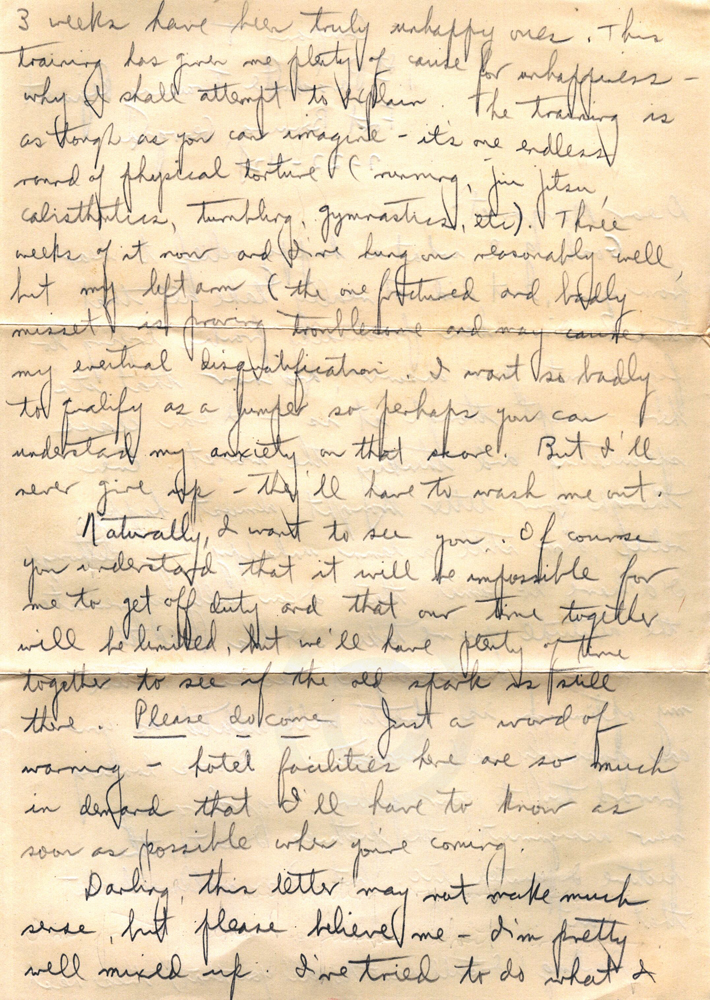 3 weeks have been truly unhappy ones. This
training has given me plenty of cause for unhappiness -
why I shall attempt to explain. The training is
as tough as you can imagine - it's one endless
round of physical torture (running, jiu jitsu,
calisthetics, tumbling, gymnastics, etc). Three
weeks of it now and I've hung on reasonably well,
but my left arm (the one fractured and badly
misset) is proving troublesome and may cause
my eventual disqualification. I want so badly
to qualify as a jumper so perhaps you can
understand my anxiety on that score. But I'll
never give up - they'll have to wash me out.
Naturally, I want to see you. Of course
you understand that it will be impossible for
me to get off duty and that our time together
will be limited, but we'll have plenty of time
together to see if the old spark is still
there. Please do come. Just a word of
warning - hotel facilities here are so much
in demand that I'll have to know as
soon as possible when you're coming.
Darling, this letter may not make much
sense, but please believe me - I'm pretty
well mixed up. I've tried to do what I